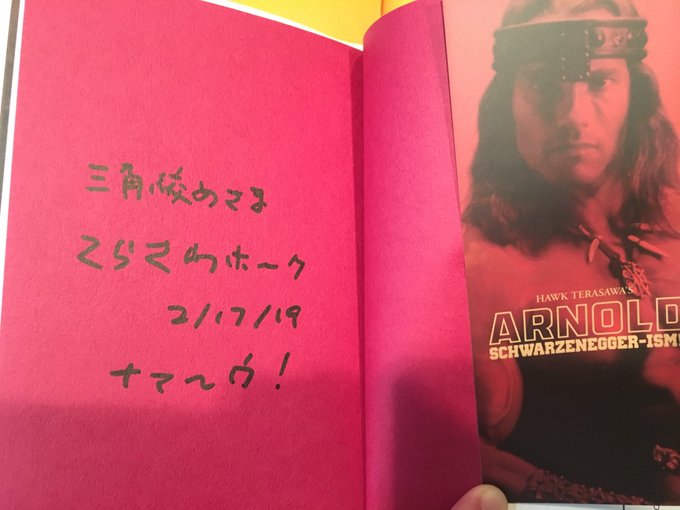 三角絞めさま
てらさわホーク
2/17/19
ナマ〜ウ!
HAWK TERASAWA'S
ARNOLD
SCHWARZENEGGER-ISM!